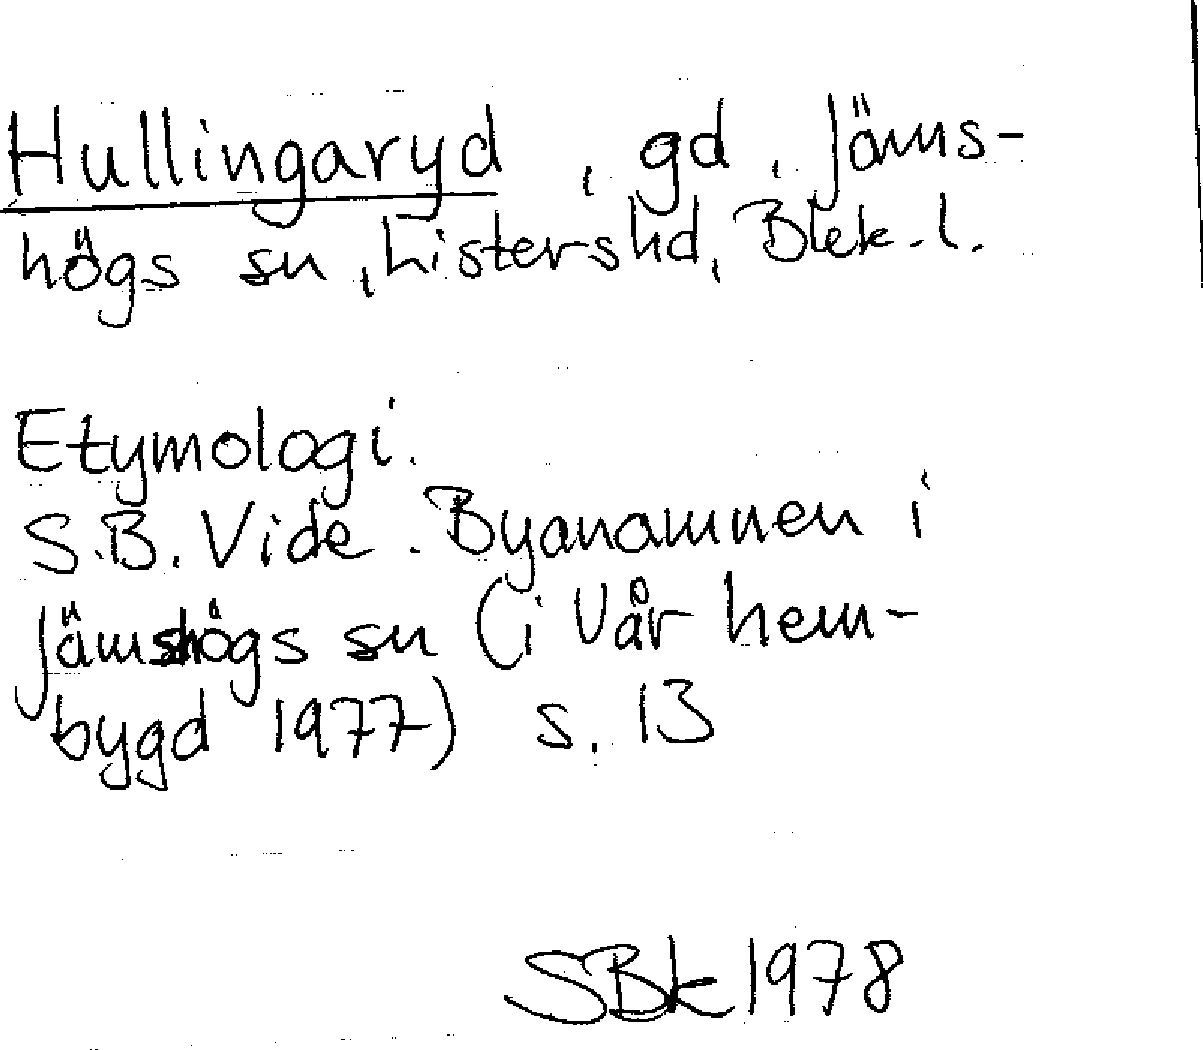 Hullingaryd, gd, Jäms-
högs sn, Listershd, Blek. l.
Etymologi.
S.B. Vide. Byanamnen i
Jämshögs sn (i Vår hem-
bygd 1977) s. 13
SBk 1978